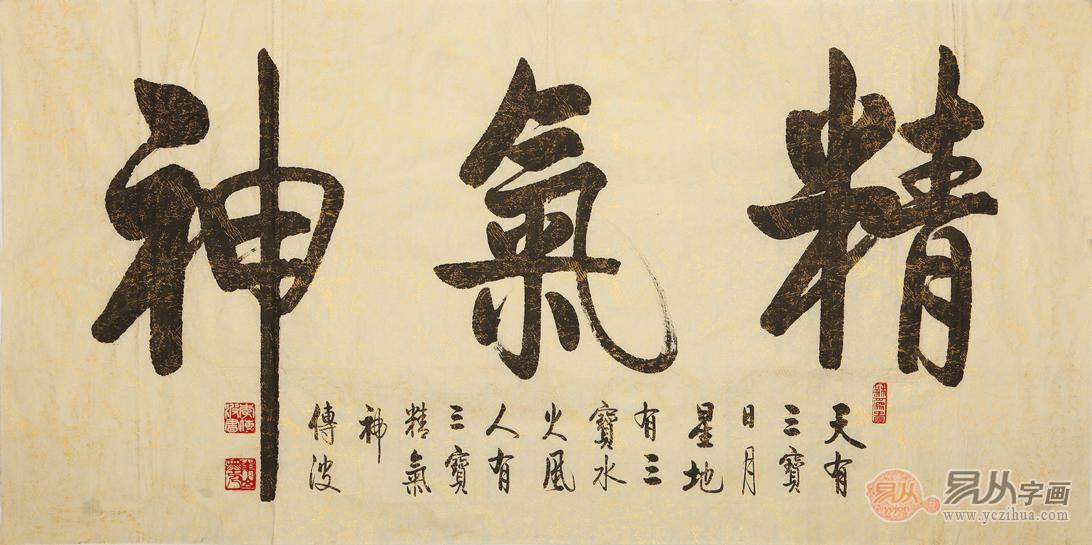 精氣神
天有
三寶
日月
星地
有三
寶水
火風
人有
三寶
精氣
神
傳波
易从
易从字画
www.yczihua.com